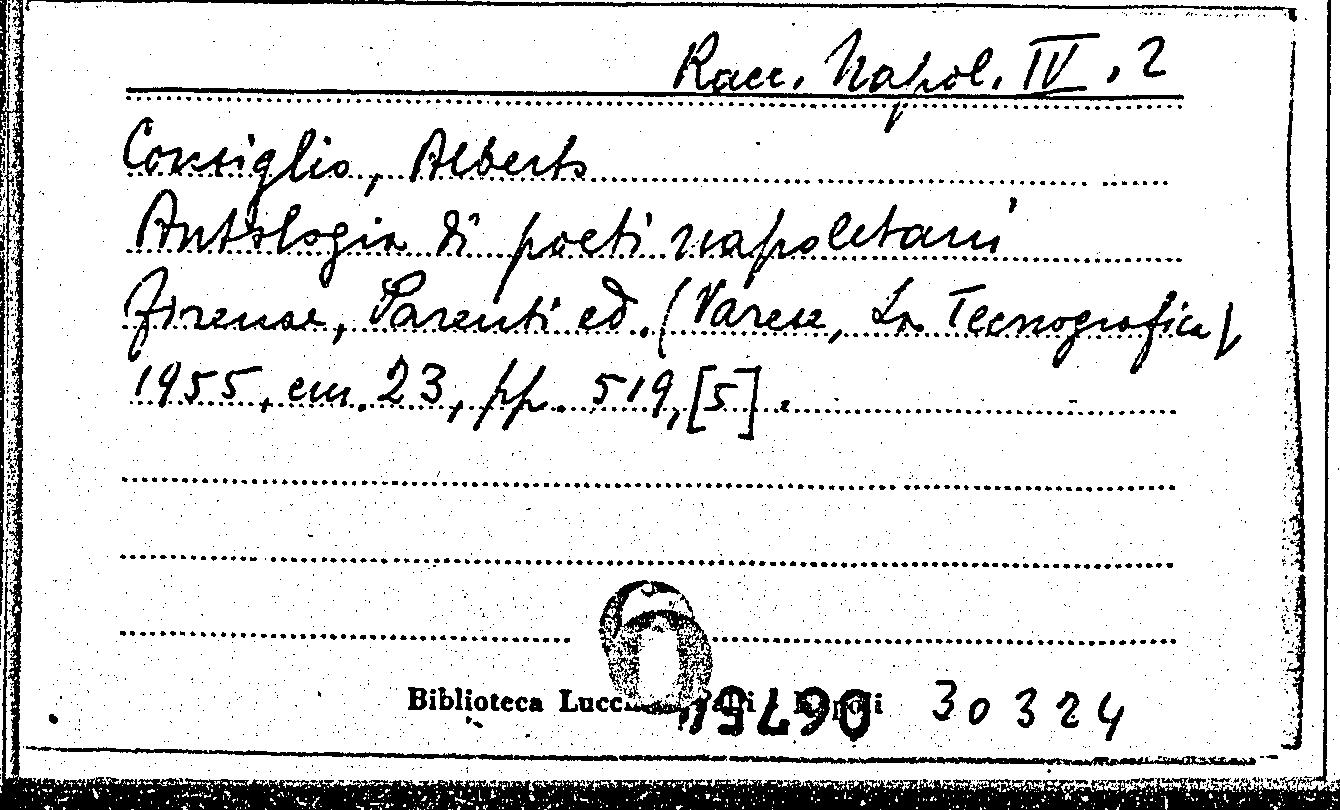 Racc. Napol. IV. 2
Consiglio, Alberto
Antologia di poeti napoletani
Firenze, Parenti ed. (Varese, La Tecnografica),
1955, cm. 23, pp. 519, [5].
Biblioteca 30324